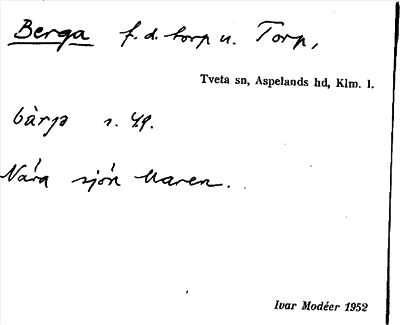 Berga f.d. torp u. Torp,
Tveta sn, Aspelands hd, Klm. l.
bàrja
Nära sjön
Ivar Modéer 1952